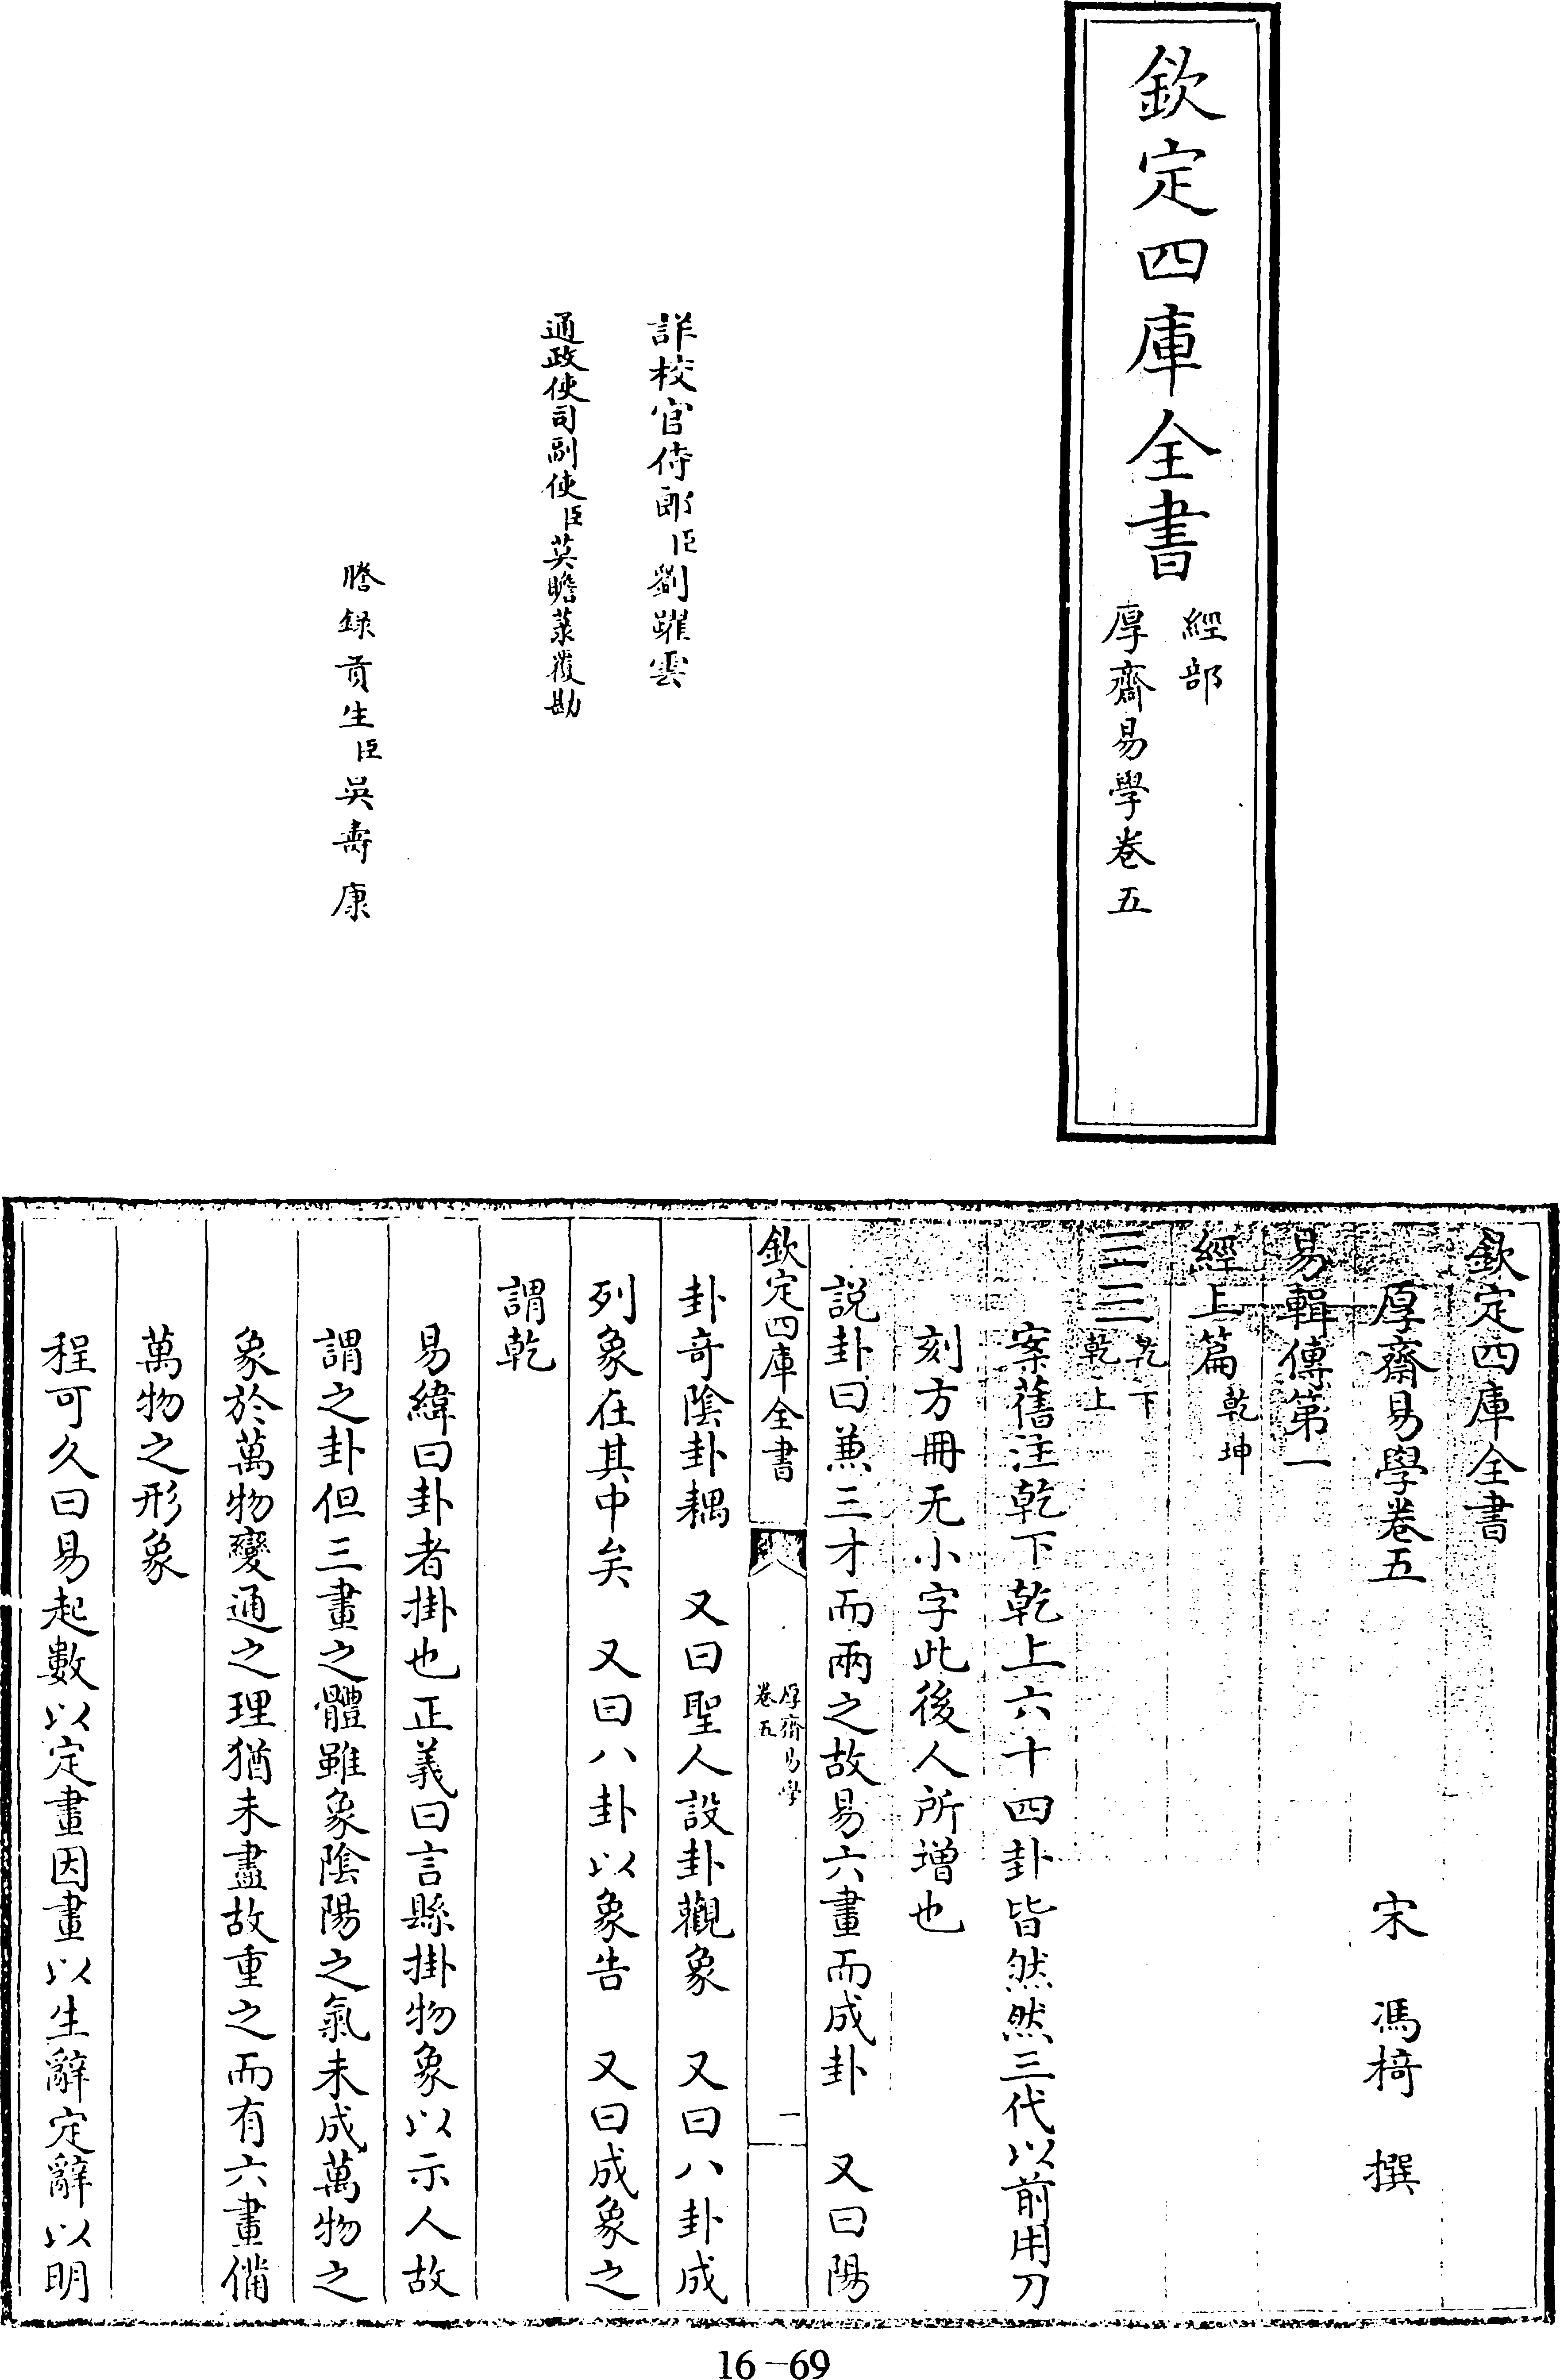 欽定四庫全書
經部
厚齋易學卷五
詳校官侍郎臣劉躍雲
通政使司副使臣莫瞻菉覆勘
謄錄貢生臣吳壽康
欽定四庫全書
厚齋易學卷五
宋 馮椅 撰
易輯傳第一
經上篇 乾坤
☰☰ 乾下
乾上
案舊注乾下乾上六十四卦皆然然三代以前用刀
刻方冊无小字此後人所增也
説卦曰兼三才而兩之故易六畫而成卦 又曰陽
欽定四庫全書
厚齋易學
卷五
一
卦奇陰卦耦 又曰聖人設卦觀象 又曰八卦成
列象在其中矣 又曰八卦以象告 又曰成象之
謂乾
易緯曰卦者掛也正義曰言縣掛物象以示人故
謂之卦但三畫之體雖象陰陽之氣未成萬物之
象於萬物變通之理猶未盡故重之而有六畫備
萬物之形象
程可久曰易起數以定畫因畫以生辭定辭以明
16-69